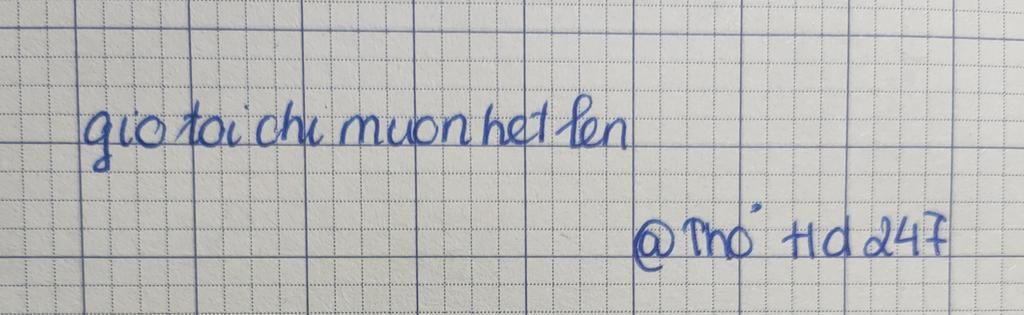 gio toi chi muon het len
@Thơ Hd 247